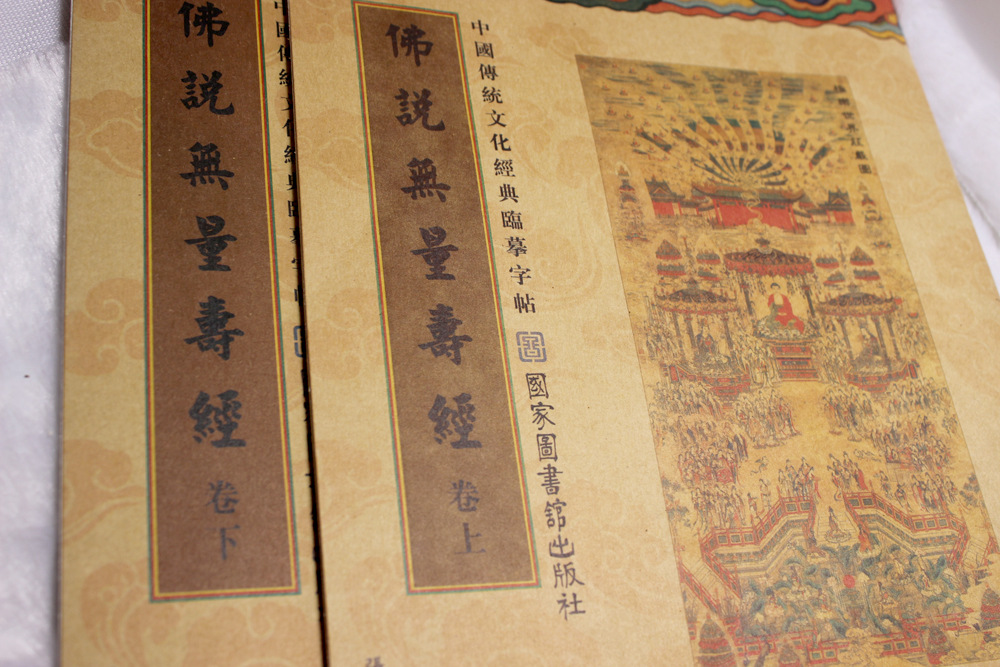 佛說無量壽經
卷上
中國傳統文化經典臨摹字帖
國家圖書館出版社
佛說無量壽經
卷下
中國傳統文化經典臨